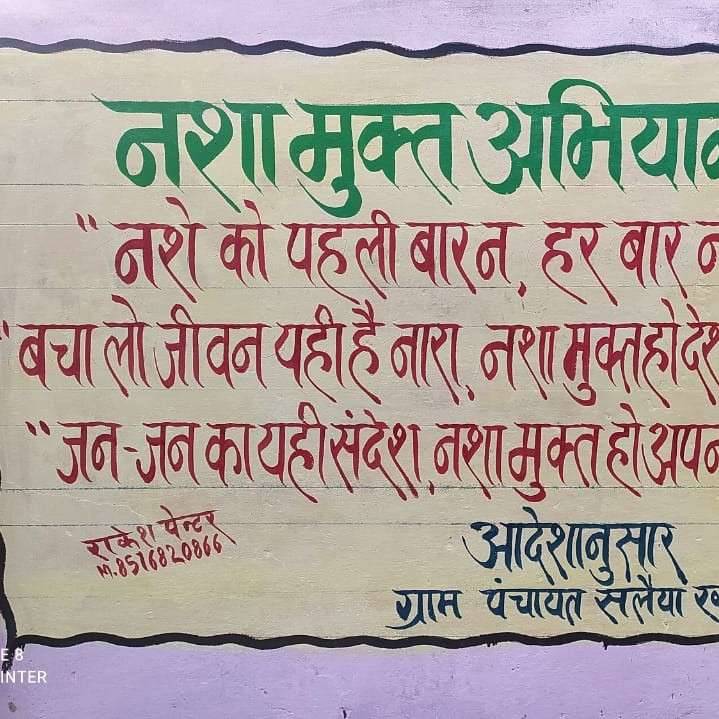 नशा मुक्त अभियान
" नशे को पहली बार न, हर बार न
" बचा लो जीवन यही है नारा, नशा मुक्त हो देश
" जन-जन का यही संदेश, नशा मुक्त हो अपन
राकेश पेन्टर
M.8516820866
आदेशानुसार
ग्राम पंचायत सलैया
E 8
INTER